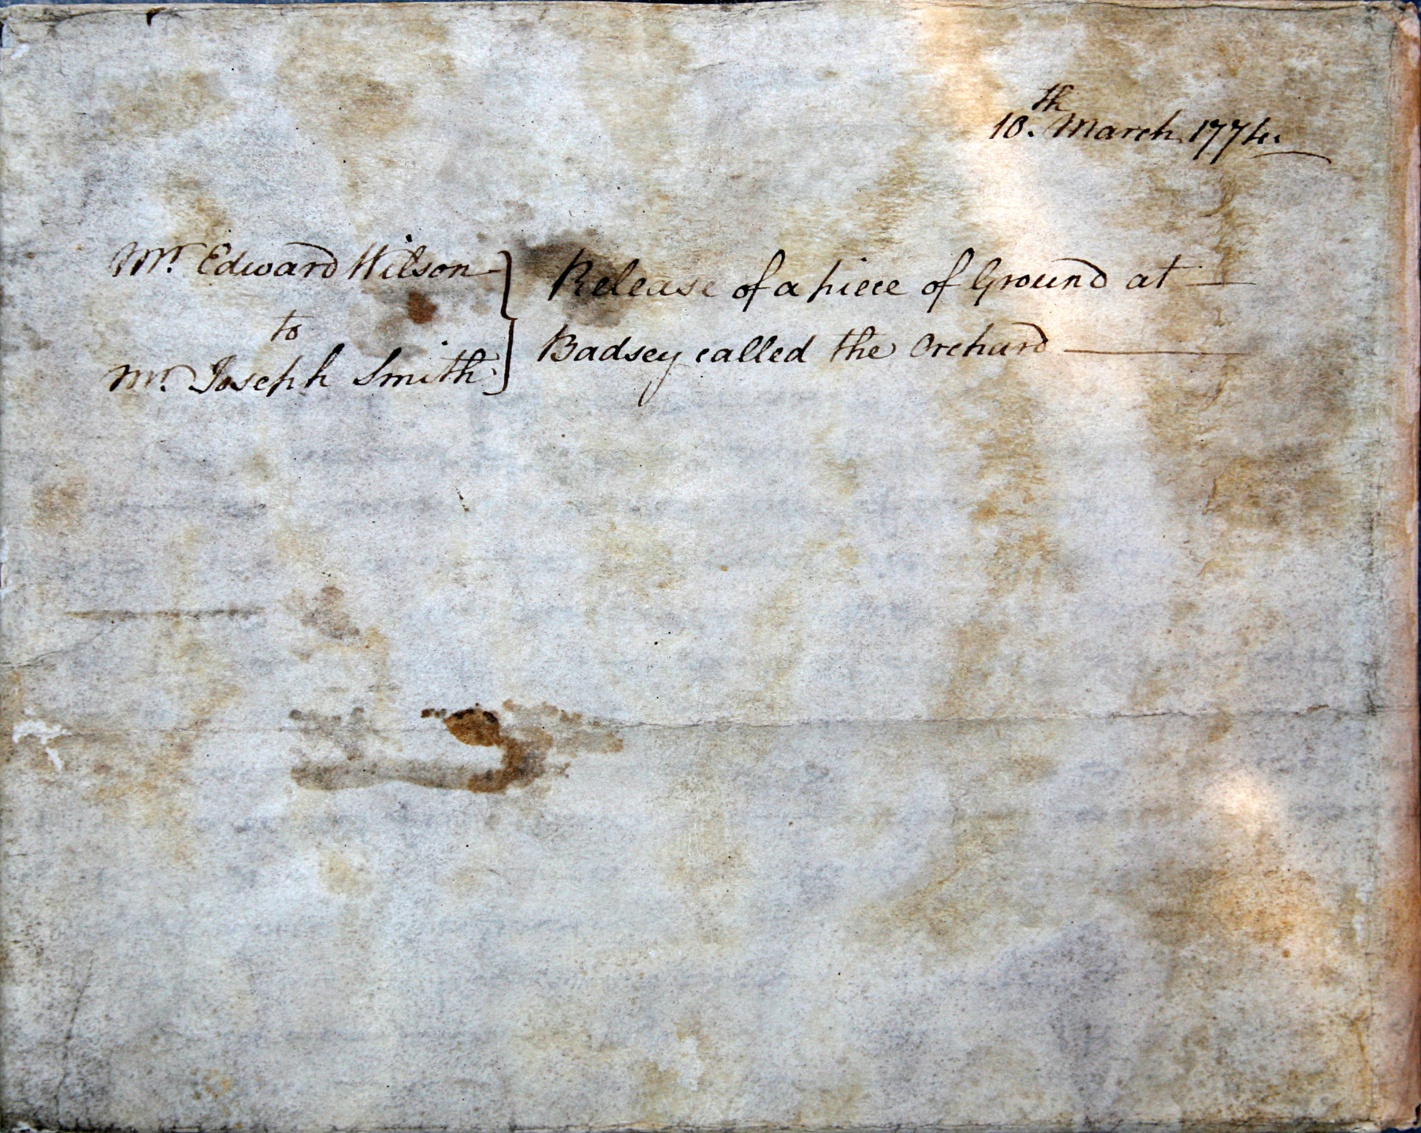 10.th March 1774.
Mr. Edward Wilson
to
Mr. Joseph Smith
Release of a piece of Ground at
Badsey called the Orchard